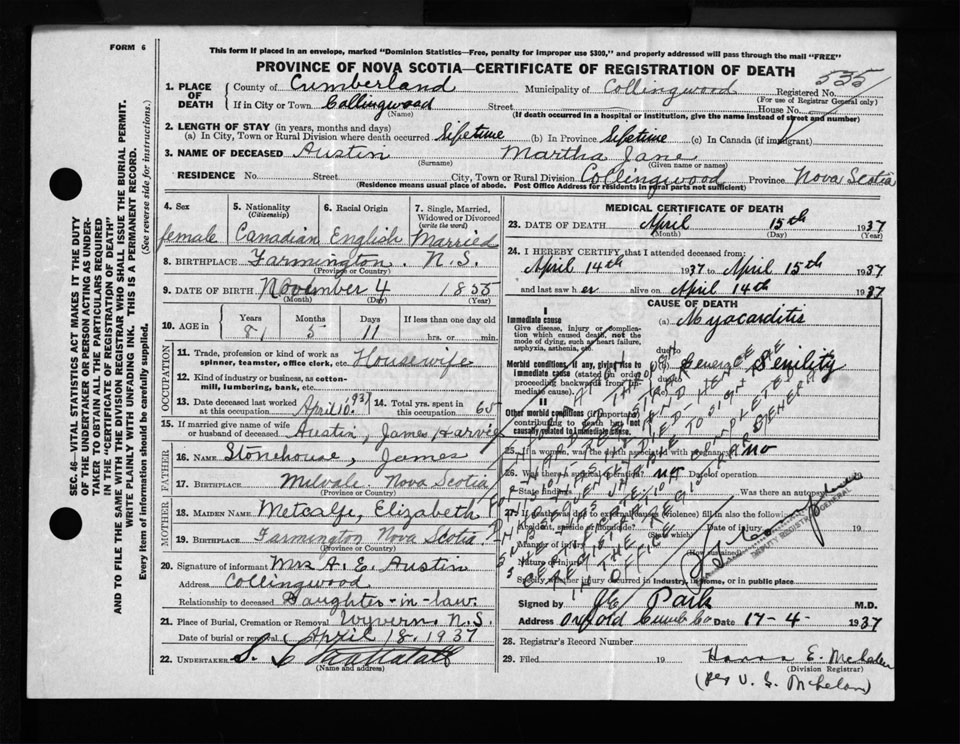 FORM 6
This form if placed in an envelope, marked "Dominion Statistics—Free, penalty for improper use $300," and properly addressed will pass through the mail "FREE"
PROVINCE OF NOVA SCOTIA—CERTIFICATE OF REGISTRATION OF DEATH
SEC. 46—VITAL STATISTICS ACT MAKES IT THE DUTY
OF THE UNDERTAKER OR PERSON ACTING AS UNDER-
TAKER TO OBTAIN ALL THE PARTICULARS REQUIRED
IN THE "CERTIFICATE OF REGISTRATION OF DEATH"
AND TO FILE THE SAME WITH THE DIVISION REGISTRAR WHO SHALL ISSUE THE BURIAL PERMIT.
WRITE PLAINLY WITH UNFADING INK. THIS IS A PERMANENT RECORD.
Every item of information should be carefully supplied. (See reverse side for instructions.)
1. PLACE OF DEATH County of Cumberland Municipality of Collingwood Registered No. 535
(For use of Registrar General only)
If in City or Town Collingwood Street House No.
(Name) (If death occurred in a hospital or institution, give the name instead of street and number)
2. LENGTH OF STAY (in years, months and days)
(a) In City, Town or Rural Division where death occurred lifetime (b) In Province lifetime (c) In Canada (if immigrant)
3. NAME OF DECEASED Austin Martha Jane
(Surname) (Given name or names)
RESIDENCE No. Street City, Town or Rural Division Collingwood Province Nova Scotia
(Residence means usual place of abode. Post Office Address for residents in rural parts not sufficient)
4. Sex 5. Nationality (Citizenship) 6. Racial Origin 7. Single, Married, Widowed or Divorced (write the word)
female Canadian English Married
8. BIRTHPLACE Farmington. N.S.
(Province or Country)
9. DATE OF BIRTH November 4 1855
(Month) (Day) (Year)
10. AGE in Years Months Days If less than one day old
81 5 11 hrs. or min.
OCCUPATION
11. Trade, profession or kind of work as spinner, teamster, office clerk, etc. Housewife
12. Kind of industry or business, as cotton-mill, lumbering, bank, etc.
13. Date deceased last worked at this occupation April 10. 1937 14. Total yrs. spent in this occupation 65
15. If married give name of wife or husband of deceased Austin, James Harvey
FATHER
16. NAME Stonehouse, James
17. BIRTHPLACE Nova Scotia
(Province or Country)
MOTHER
18. MAIDEN NAME Metcalfe, Elizabeth
19. BIRTHPLACE Farmington Nova Scotia
(Province or Country)
20. Signature of informant Mrs A. E. Austin
Address Collingwood
Relationship to deceased Daughter-in-law.
21. Place of Burial, Cremation or Removal Wyvern, N.S.
Date of burial or removal April 18, 1937
22. UNDERTAKER
(Name and address)
MEDICAL CERTIFICATE OF DEATH
23. DATE OF DEATH April 15th 1937
(Month) (Day) (Year)
24. I HEREBY CERTIFY that I attended deceased from:
April 14th 1937 to April 15th 1937
and last saw her alive on April 14th 1937
CAUSE OF DEATH
I
Immediate cause (a) Myocarditis
Give disease, injury or complication which causes death, not the mode of dying, such as heart failure, asphyxia, asthenia, etc.
due to
Morbid conditions, if any, giving rise to immediate cause (stated in order proceeding backwards from immediate cause). (b) Senility
due to
(c)
II
Other morbid conditions (if important) contributing to death but not causally related to immediate cause.
25. If a woman, was the death associated with pregnancy? no
26. Was there a surgical operation? no Date of operation
State findings Was there an autopsy?
27. If death was due to external causes (violence) fill in also the following:
Accident, suicide or homicide? Date of injury 19
Manner of injury
Nature of injury
Specify whether injury occurred in industry, in home, or in public place
DEPUTY REGISTRAR GENERAL
Signed by Park M.D.
Address Oxford Cumb Co Date 17-4- 1937
28. Registrar's Record Number
29. Filed 19 E.
(Division Registrar)
(per V. G.